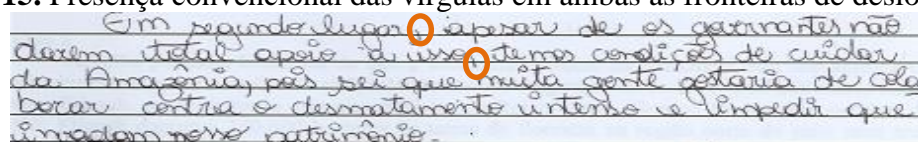 15. Presença convencional das vírgulas em ambas as fronteiras de deslo
Em segundo lugar, apesar de os governantes não
darem total apoio a isso, temos condições de cuidar
da Amazônia, pois sei que muita gente gostaria de cola
borar contra o desmatamento intenso e impedir que
invadam nosso patrimônio.